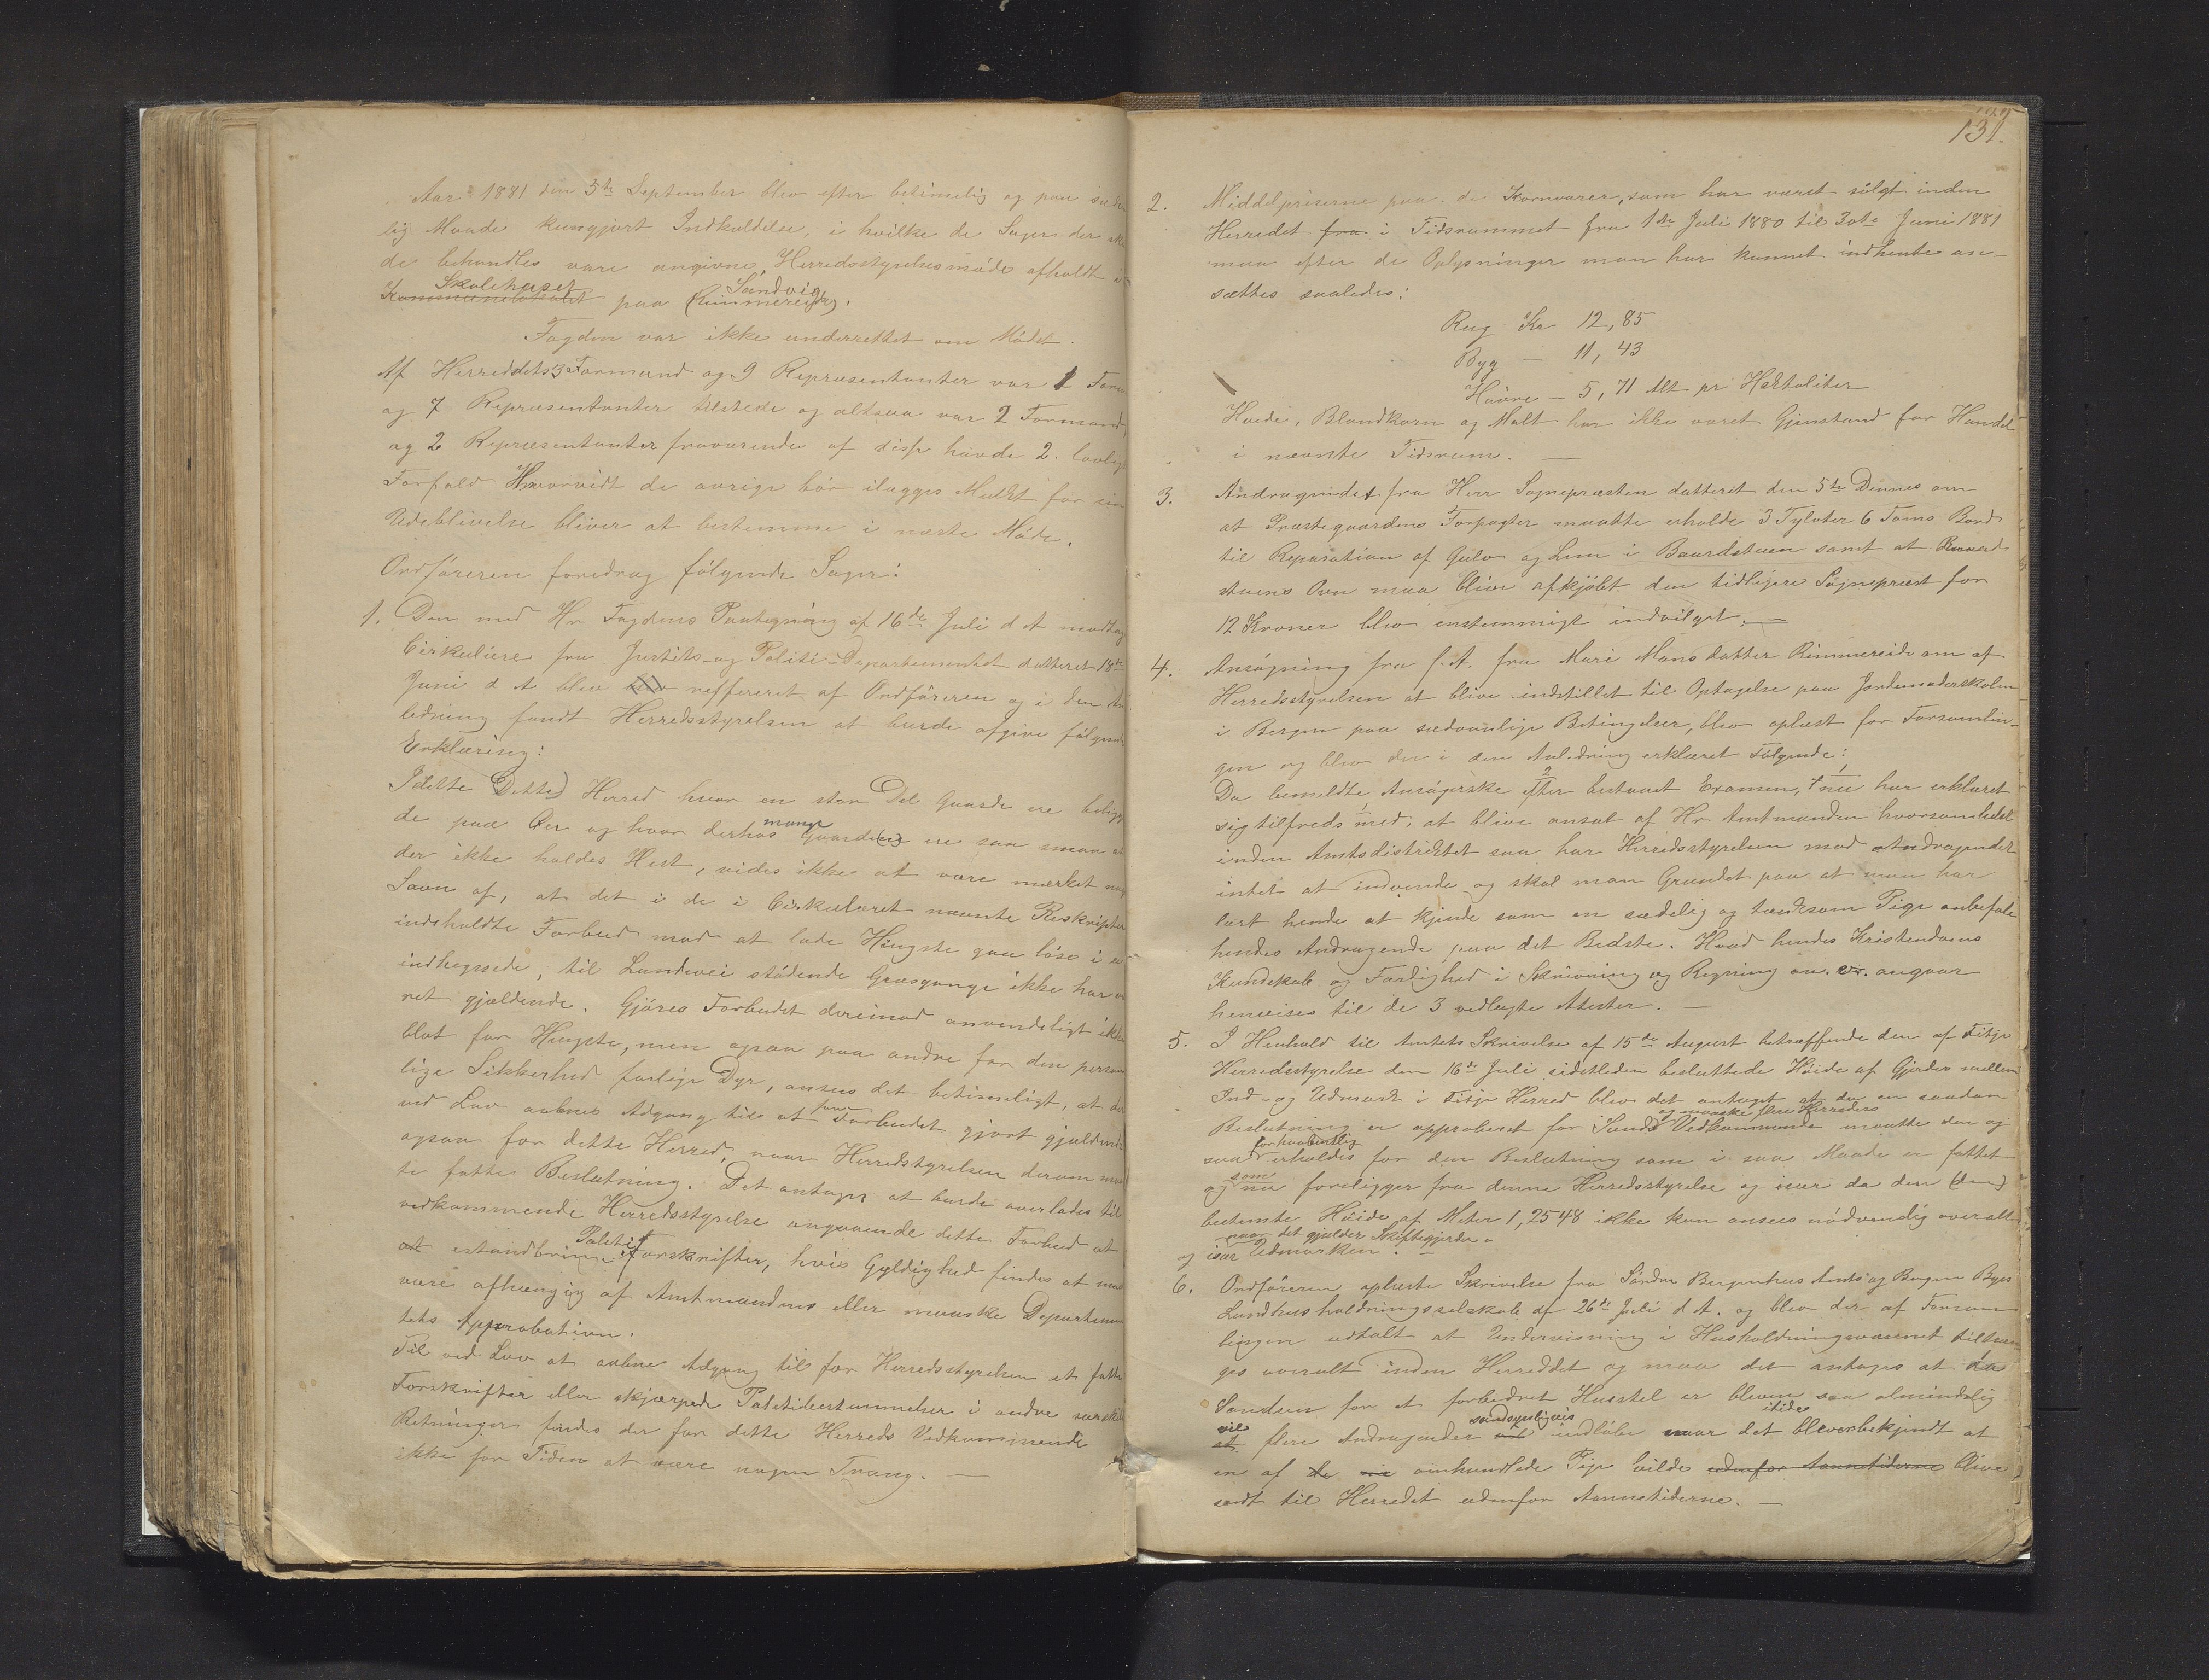 Aar 1881 den 5te September blev efter betimelig og paa sæde
lig Maade kungjort Indkaldelse, i hvilke de Sager der sk
de behandles vare angivne, Herredsstyrelsesmöde afholdt i
Skolehuset Sandvig
Kommunelokalet paa (Rimmereide).
Fogden var ikke underrettet om Mödet.
Af Herreddets 3 Formænd og 9 Repræsentanter var 1 Form
og 7 Repræsentanter tilstede og altsaa var 2 Formænd
og 2 Repræsentanter fraværende af disse havde 2 lovlig
Forfald Hvorvidt de øvrige bör ilægges Mulkt for sin
Udeblivelse bliver at bestemme i næste Möde.
Ordföreren foredrog fölgende Sager:
1. Den med Hr Fogdens Paategning af 16de Juli d A modtag
Cirkulære fra Justits- og Politi-Departementet datteret 18de
Juni d A blev reffereret af Ordföreren og i den An
ledning fandt Herredsstyrelsen at burde afgive fölgende
Erklæring:
I dette (Dette) Herred hvor en stor Del Gaarde ere belig
de paa Öer og hvor derhos mange Gaarde(ne) ere saa smaa at
der ikke holdes Hest, vides ikke at være mærket nog
Savn af, at det i de i Cirkulæret nævnte Reskripter
indeholdte Forbud mod at lade Hingste gaa löse i u
indhegnede, til Landevei stödende Græsgange ikke har væ
ret gjældende. Gjöres Forbudet derimod anvendeligt ikke
blot for Hingste, men ogsaa paa andre for den person
lige Sikkerhed farlige Dyr, ansees det betimeligt, at de
ved Lov aabnes Adgang til at faae Forbudet gjort gjældende
ogsaa for dette Herred, naar Herredstyrelsen derom maa
te fatte Beslutning. Det antages at burde overlades til
vedkommende Herredsstyrelse angaaende dette Forbud at
at istandbringe Politi Forskrifter, hvis Gyldighed findes at maa
være afhængig af Amtmandens eller maaske Departemen
tets Approbation.
Til ved Lov at aabne Adgang til for Herredsstyrelsen at fatte
Forskrifter eller skjærpede Politibestemmelser i andre særskilte
Retninger findes der for dette Herreds Vedkommende
ikke for Tiden at være nogen Trang. —
137.
2. Middelpriserne paa de Kornvarer, som har været sölgt inden
Herredet fra i Tidsrummet fra 1ste Juli 1880 til 30te Juni 1881
maa efter de Oplysninger man har kunnet indhente an-
sættes saaledes:
Rug Kr 12,85
Byg — 11,43
Havre — 5,71 Alt pr Hektoliter
Hvede, Blandkorn og Malt har ikke været Gjenstand for Handel
i nævnte Tidsrum. —
3. Andragendet fra Herr Sognepræsten datteret den 5te Dennes om
at Præstegaardens Forpagter maatte erholde 3 Tylvter 6 Toms Bord
til Reparation af Gulv og Lem i Baardstuen samt at Baard
stuens Ovn maa blive afkjöbt den tidligere Sognepræst for
12 Kroner blev enstemmigt indvilget. —
4. Ansögning fra f. A. fra Mari Monsdatter Rimmereide om af
Herredsstyrelsen at blive indstillet til Optagelse paa Jordemoderskolen
i Bergen paa sædvanlige Betingelser, blev oplæst for Forsamlin-
gen og blev der i den Anledning erklæret Fölgende:
Da bemeldte Ansögerske efter bestaaet Examen, nu har erklæret
sig tilfreds med, at blive ansat af Hr Amtmanden hvorsomhelst
inden Amtsdistriktet saa har Herredsstyrelsen mod Andragendet
intet at indvende og skal man Grundet paa at man har
lært hende at kjende som en sædelig og tænksom Pige anbefale
hendes Andragende paa det Bedste. Hvad hendes Kristendoms
Kundskab og Færdighed i Skrivning og Regning m. v. angaar
henvises til de 3 vedlagte Atester. —
5. I Henhold til Amtets Skrivelse af 15de August betræffende den af Fitje
Herredsstyrelse den 16de Juli sidstleden besluttede Höide af Gjerder mellem
Ind- og Udmark i Fitje Herred blev det antaget at da en saadan
og maaske flere Herreders
Beslutning er approberet for Sunds Vedkommende maatte den og
saa forhaabentlig erholdes for den Beslutning som i saa Maade er fattet
og som nu foreligger fra denne Herredsstyrelse og især da den (den)
bestemte Höide af Meter 1,2548 ikke kan ansees nödvendig overalt
naar det gjælder Skiftegjerder
og især Udmarken. —
6. Ordföreren oplæste Skrivelse fra Söndre Bergenhus Amts og Bergen Byes
Landhusholdningsselskab af 26de Juli d A. og blev der af Forsam
lingen udtalt at Undervisning i Husholdningsvæsenet tiltræn
ges overalt inden Herreddet og maa det antages at da
Sandsen for et forbedret Husstel er bleven saa almindelig
vil flere Andragender sandsynligviis indlöbe naar det itide bleven bekjendt at
en af de omhandlede Pige vilde udenfor Aannetiderne blive
sendt til Herredet udenfor Aannetiderne. —